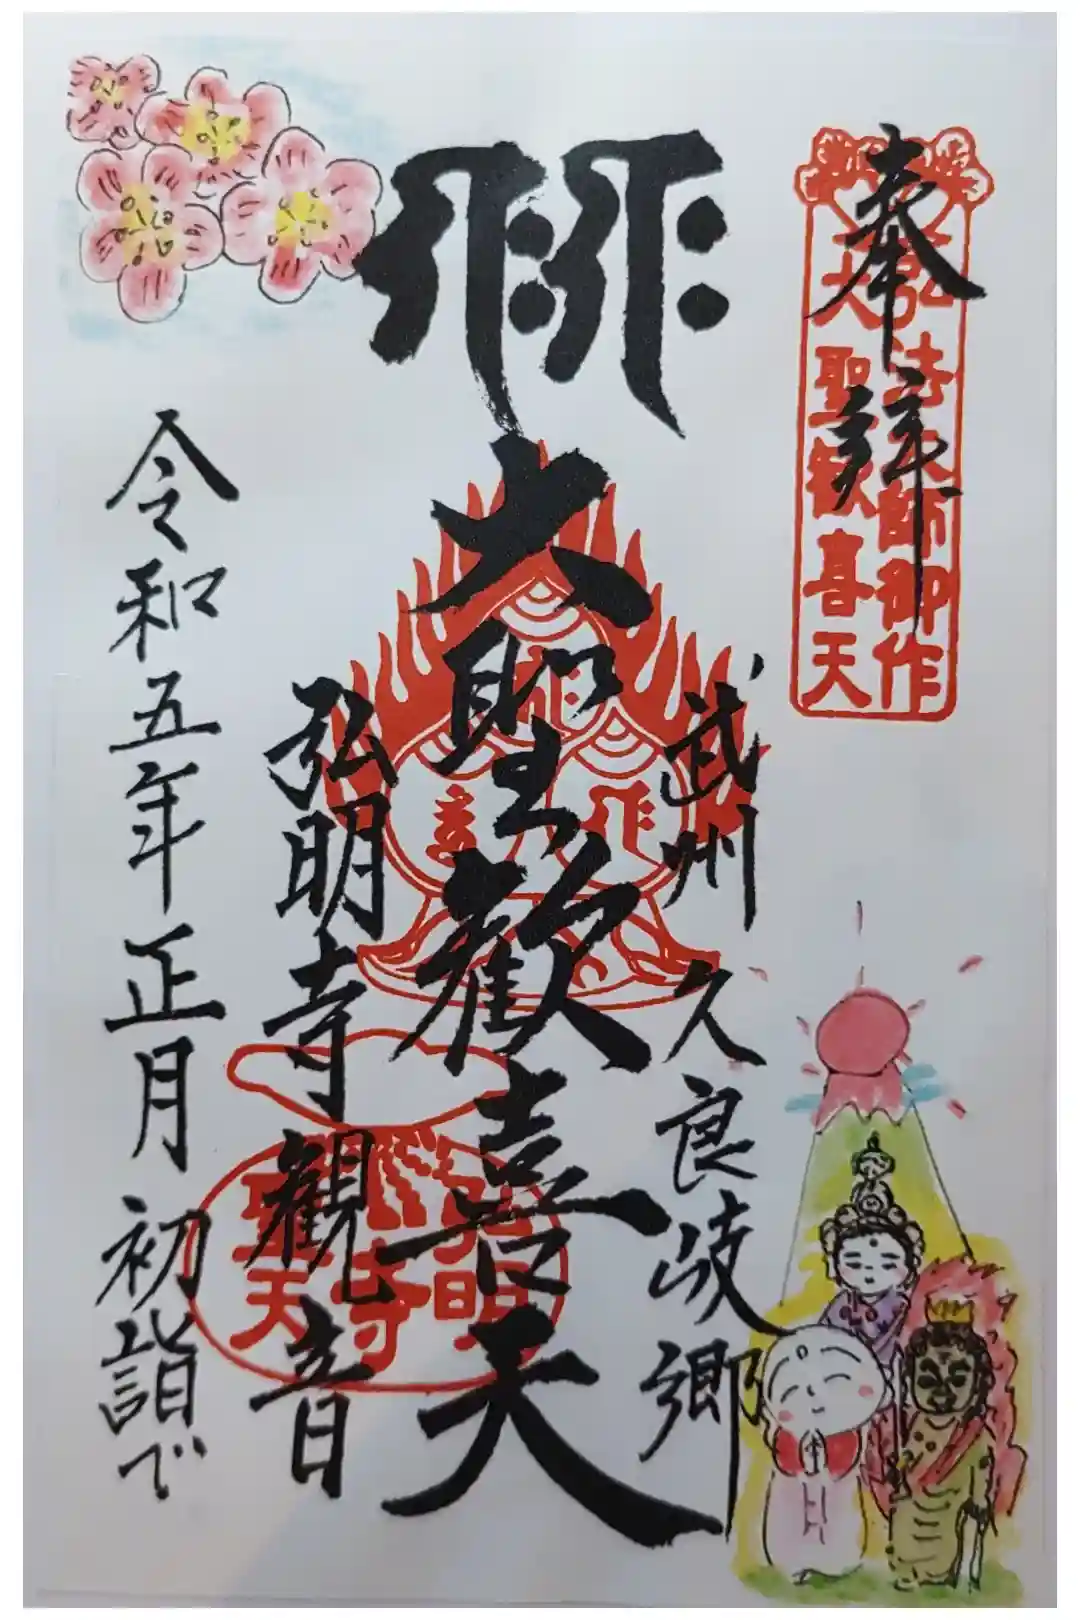 奉拝
弘法大師御作
大聖歓喜天
武州 久良岐郷
大聖歓喜天
弘明寺観音
弘明寺
聖天
令和五年正月 初詣で